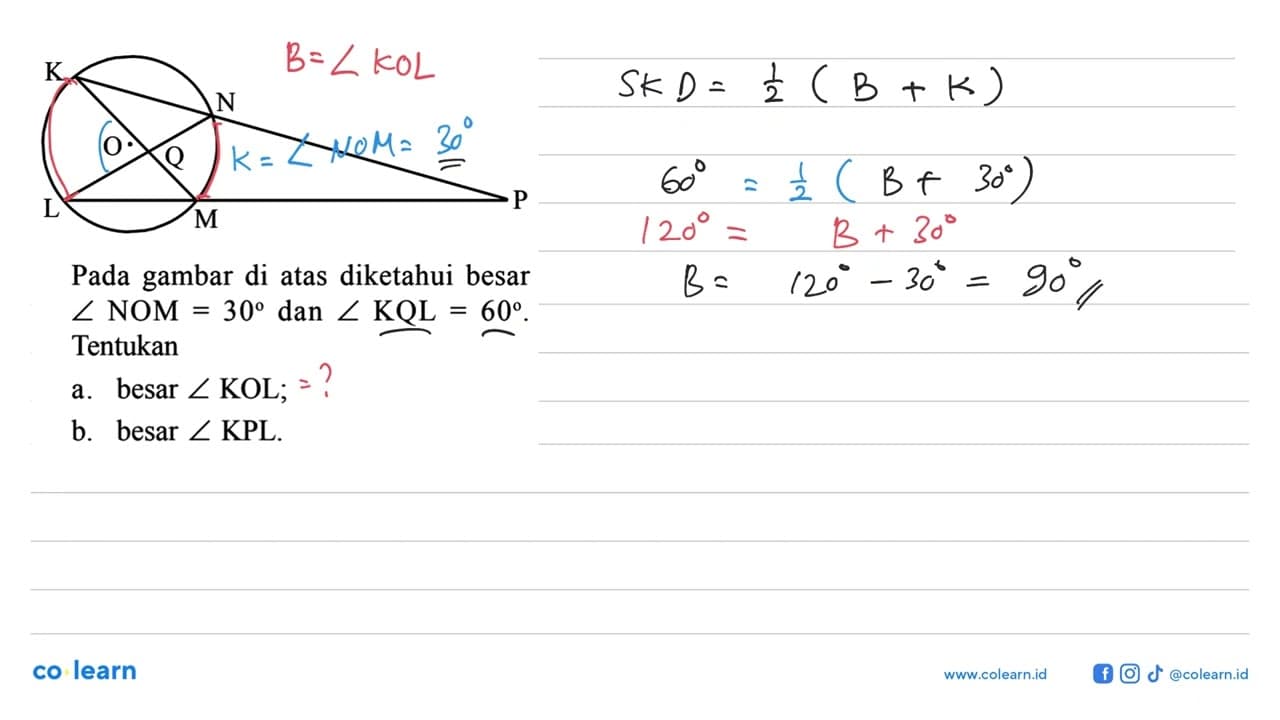 B = ∠ KOL
K
N
O
Q
K = ∠ NOM = 30°
L
M
P
Pada gambar di atas diketahui besar
∠ NOM = 30° dan ∠ KQL = 60°.
Tentukan
a. besar ∠ KOL; = ?
b. besar ∠ KPL.
SKD = 1/2 ( B + K )
60° = 1/2 ( B + 30° )
120° = B + 30°
B = 120° - 30° = 90° //
co learn
www.colearn.id
@colearn.id